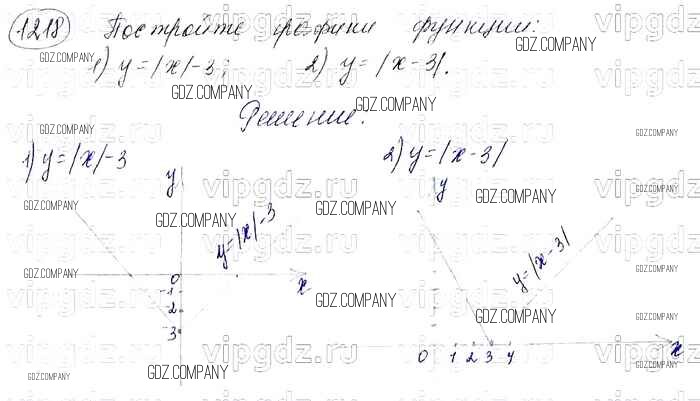 1218 Постройте графики функции:
1) y=|x|-3; 2) y=|x-3|.
Решение.
1) y=|x|-3
2) y=|x-3|
y
y
y=|x|-3
y=|x-3|
0
x
-1
-2
-3
0 1 2 3 4
x
GDZ.COMPANY
vipgdz.ru